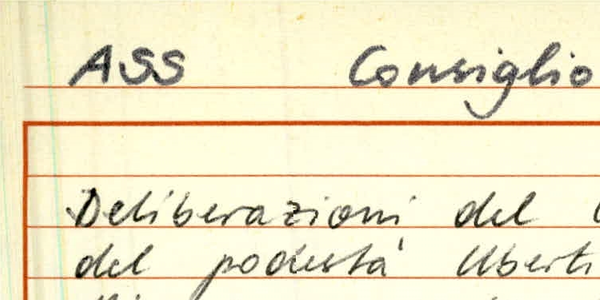 ASS Consiglio
Deliberazioni del
del podestà Uberti